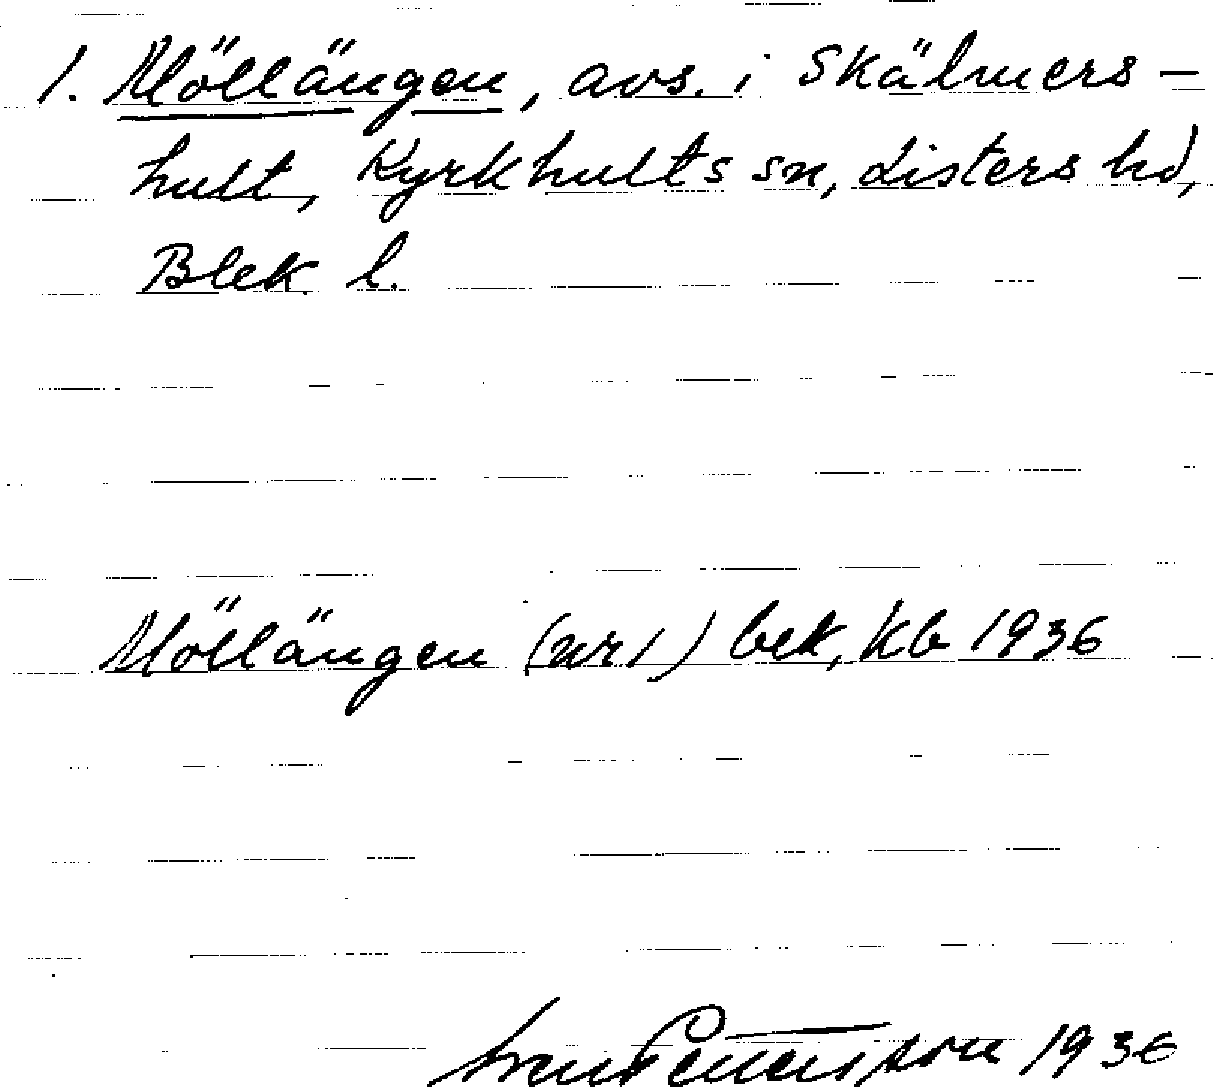 1. Möllängen, avs. i Skälmers-
hult, Kyrkhults sn, Listers hd,
Blek. l.
Möllängen (nr 1) bek, Kb 1936
1936